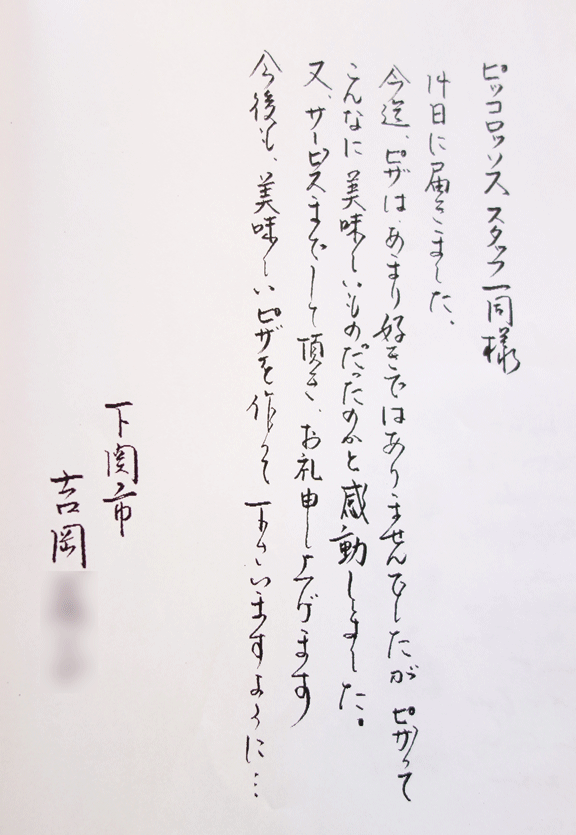 ピッコロッソス スタッフ一同様
14日に届きました、
今迄、ピザは、あまり好きではありませんでしたが ピザって
こんなに美味しいものだったのかと感動しました。
又、サービスまでして頂き、お礼申し上げます
今後も、美味しいピザを作って下さいますように…
下関市
吉岡